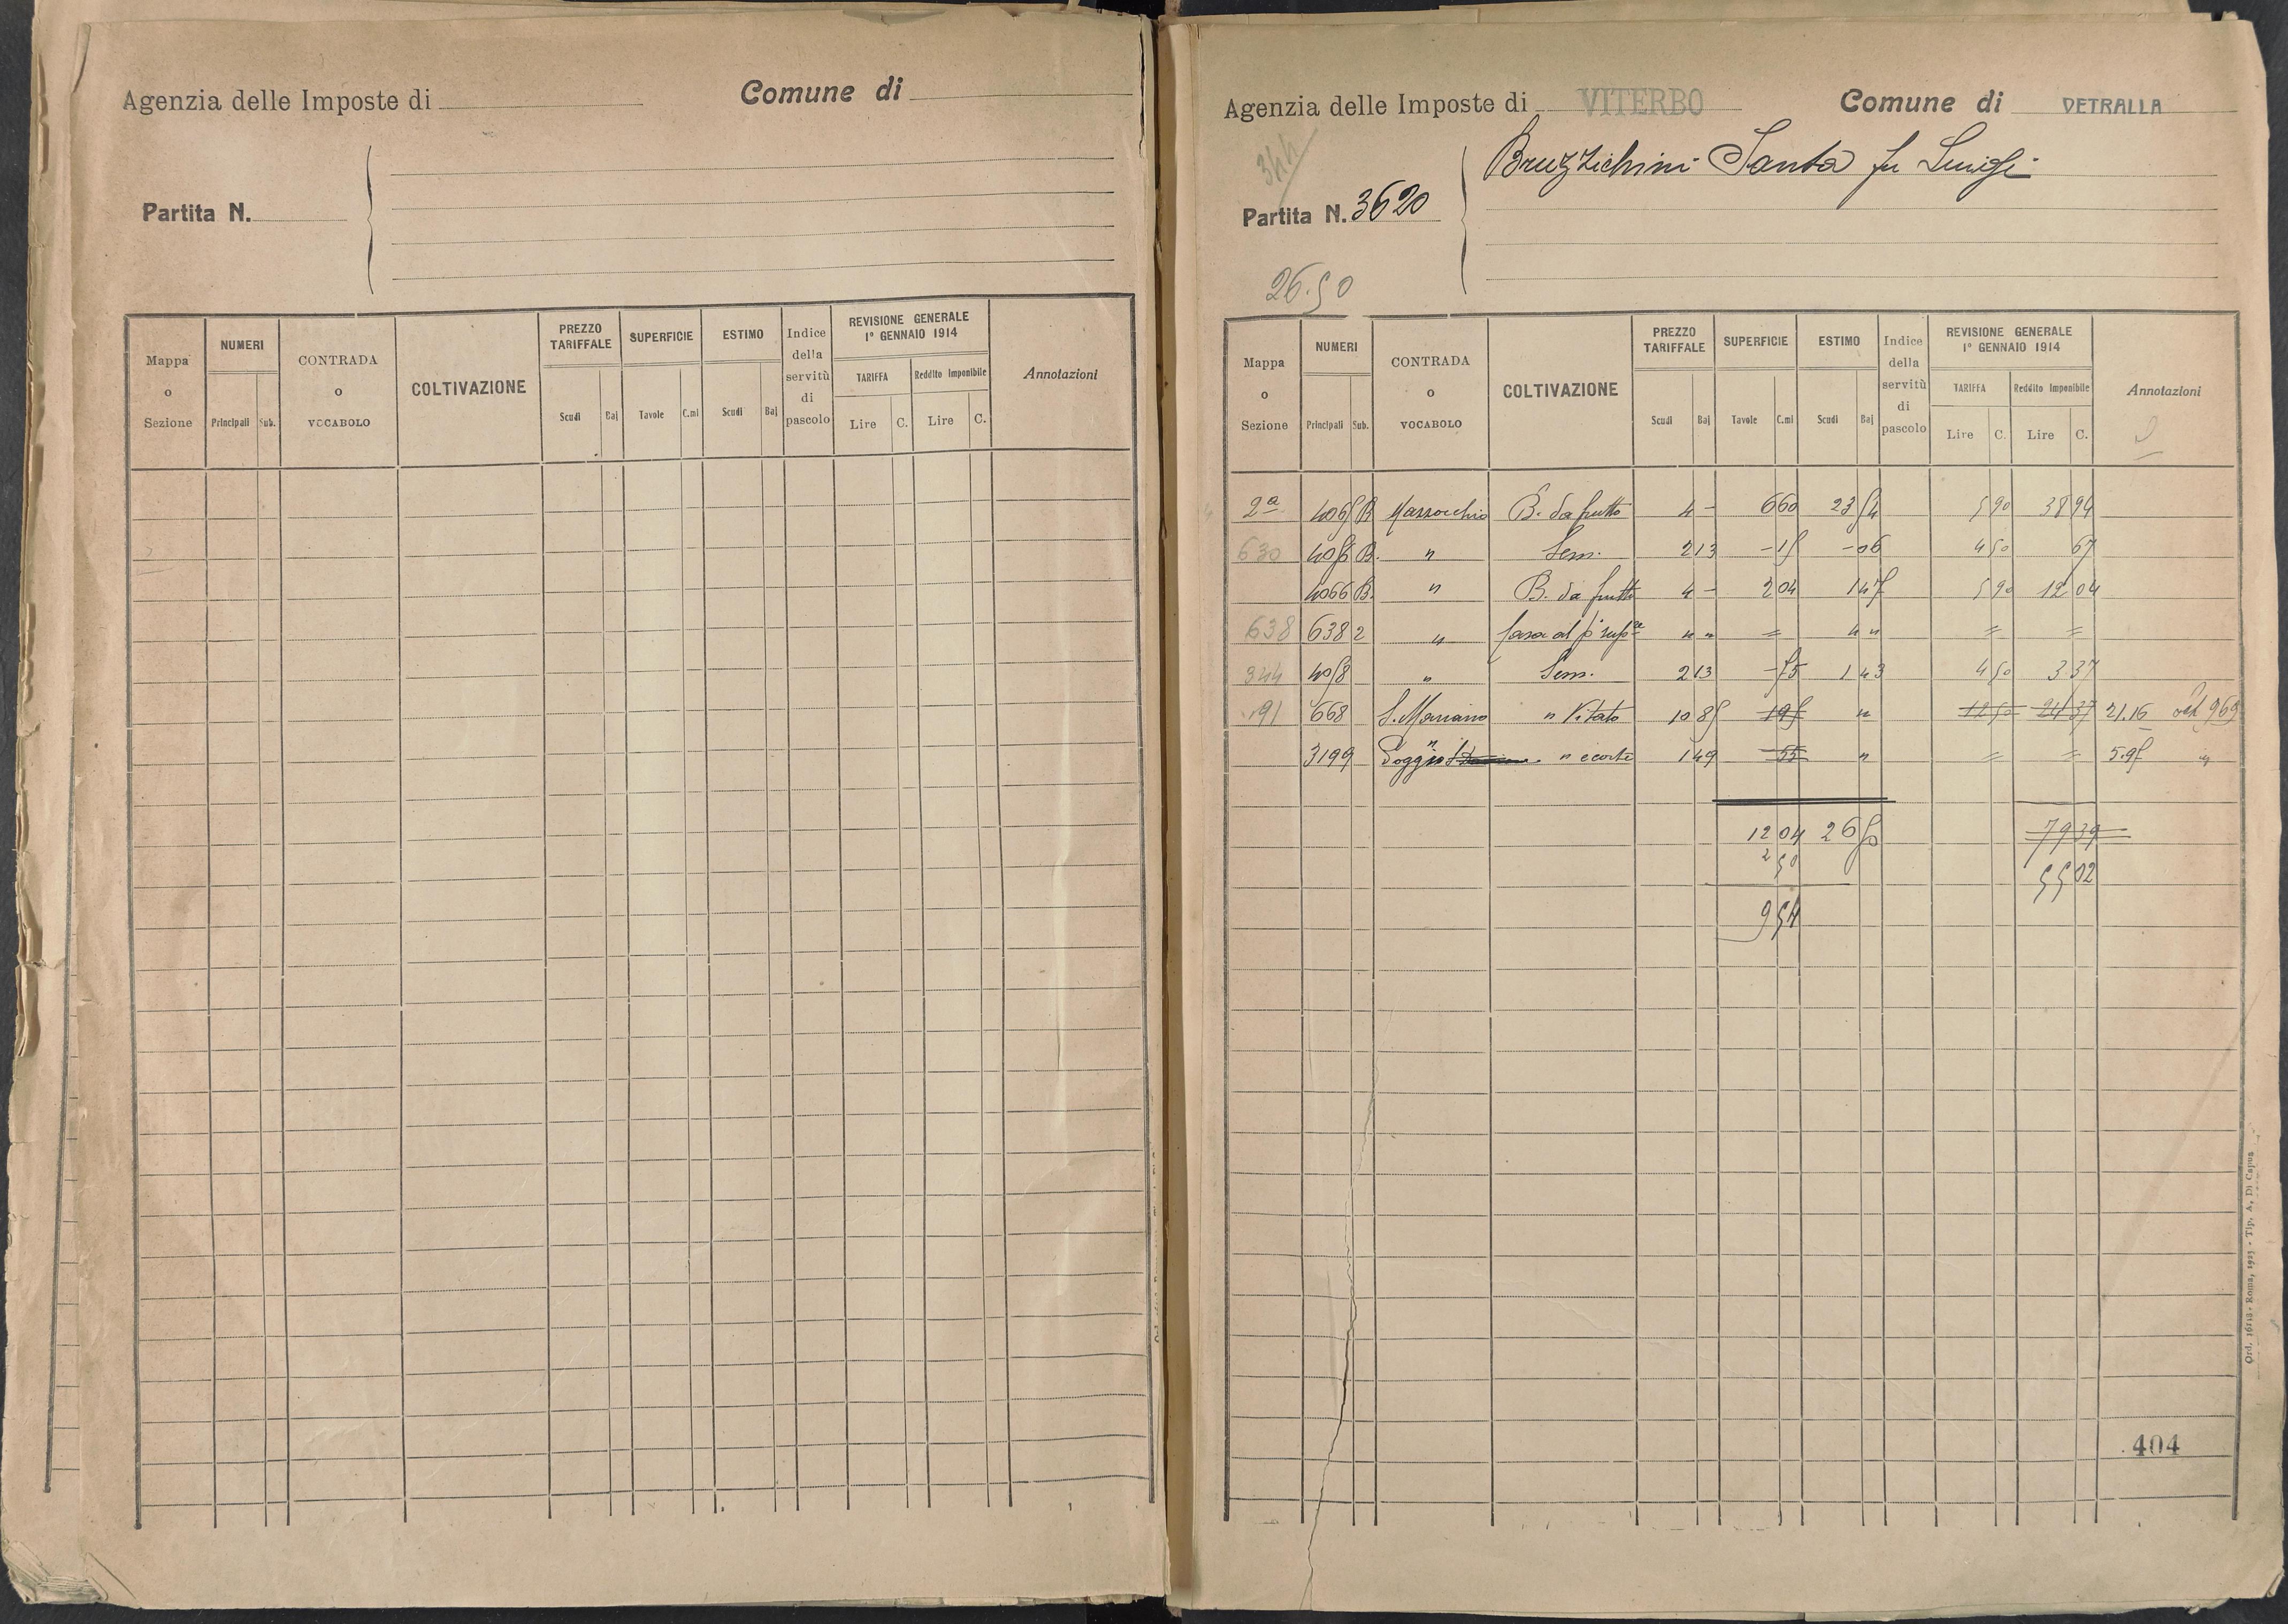 Agenzia delle Imposte di
Comune di
Partita N.
Mappa o Sezione
NUMERI
Principali Sub.
CONTRADA o VOCABOLO
COLTIVAZIONE
PREZZO TARIFFALE
Scudi Baj
SUPERFICIE
Tavole C.mi
ESTIMO
Scudi Baj
Indice della servitù di pascolo
REVISIONE GENERALE
1° GENNAIO 1914
TARIFFA
Lire C.
Reddito Imponibile
Lire C.
Annotazioni
Agenzia delle Imposte di VITERBO Comune di VETRALLA
344
Bruzzichini Santa fu Luigi
Partita N. 3620
26.50
Mappa o Sezione
NUMERI
Principali Sub.
CONTRADA o VOCABOLO
COLTIVAZIONE
PREZZO TARIFFALE
Scudi Baj
SUPERFICIE
Tavole C.mi
ESTIMO
Scudi Baj
Indice della servitù di pascolo
REVISIONE GENERALE
1° GENNAIO 1914
TARIFFA
Lire C.
Reddito Imponibile
Lire C.
Annotazioni
2a 4065 B Mazzocchio B. da frutto 4 - 6 60 23 54 5 90 38 94
630 B. " Sem. 2 13 - 15 - 06 4 50 67
4066 B. " B. da frutto 4 - 2 04 1 47 5 90 12 04
638 638 2 " " " = " " = =
344 4058 " Sem. 2 13 - 75 1 43 4 50 3 37
191 668 S. Mariano " Vitato 10 85 195 " 12 50 24 37 21.16 969
3199 Poggio " e corte 1 49 55 " = = 5.95 "
12 04 26 50 79 39
2 50 55 02
9 54
404
Ord. 16218 - Roma, 1923 - Tip. A. Di Capua